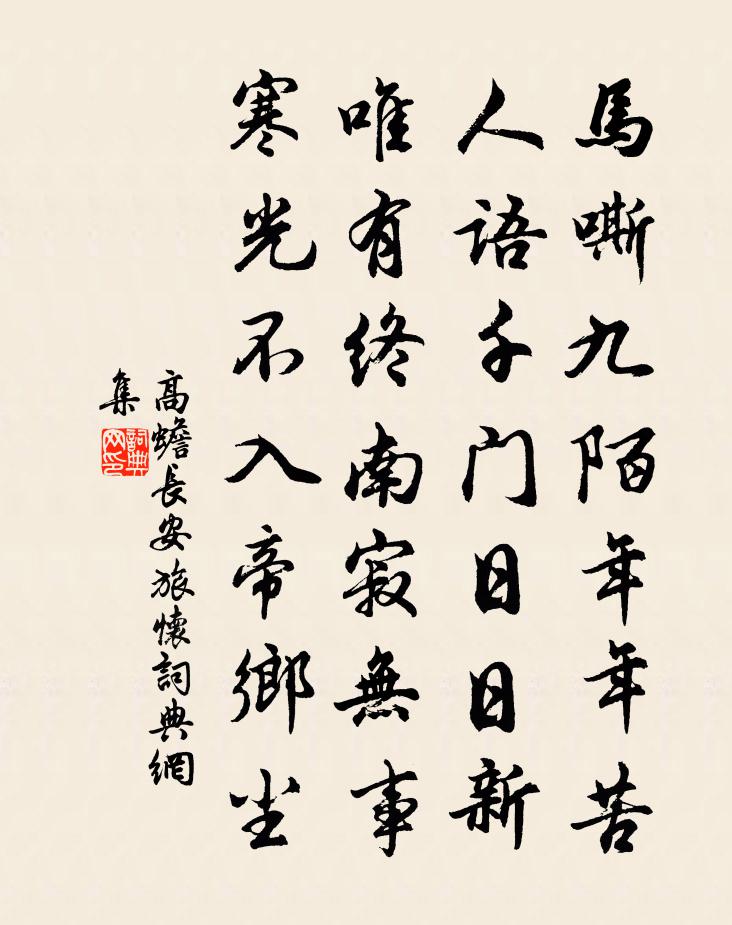 馬嘶九陌年年苦
人語千门日日新
唯有終南寂無事
寒光不入帝鄉尘
高蟾長安旅懷詞典網
集
詞典
网印